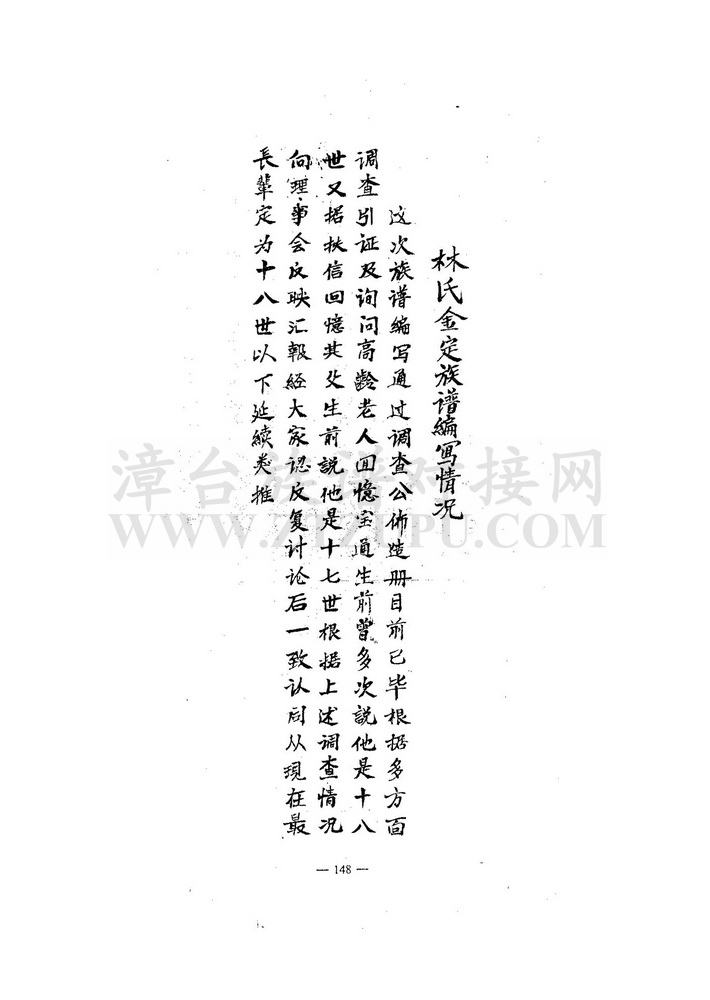 林氏金定族谱编写情况
这次族谱编写通过调查公佈造册目前已毕根据多方面
调查引证及询问高龄老人回憶宝通生前曾多次説他是十八
世又据扶信回憶其父生前説他是十七世根据上述调查情况
向理事会反映汇報経大家認反复讨论后一致认同从現在最
長輩定为十八世以下延續类推
漳台族谱对接网
WWW.ZTZUPU.COM
— 148 —